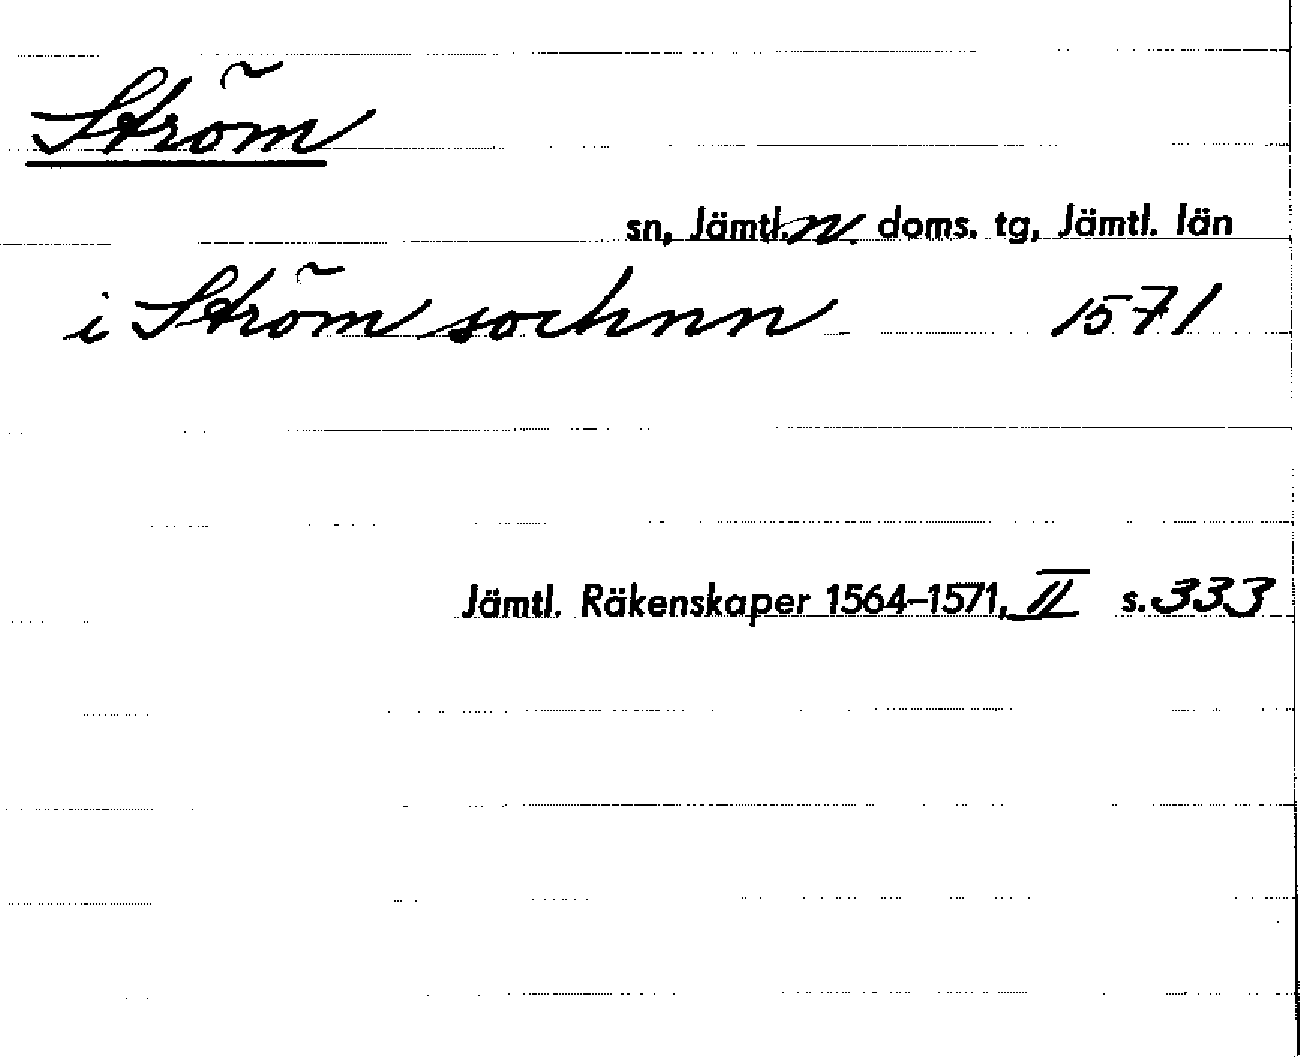 Ström
sn, Jämtl. n. doms. tg, Jämtl. län
i Ström sochnn 1571
Jämtl. Räkenskaper 1564–1571, II s. 333